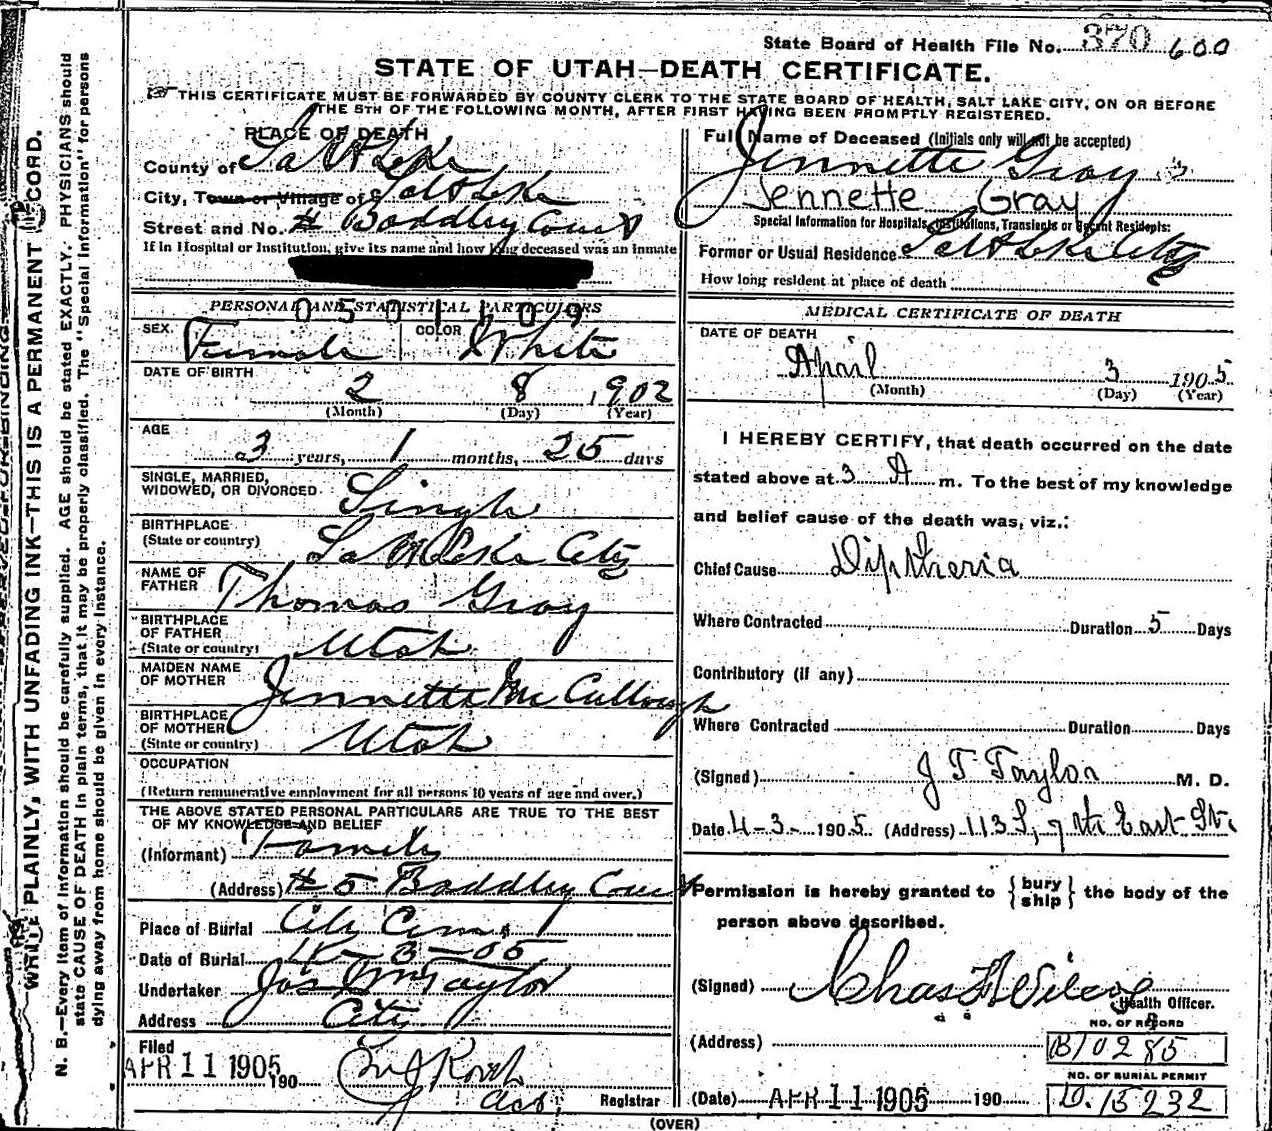 State Board of Health File No. 370 600
STATE OF UTAH—DEATH CERTIFICATE.
THIS CERTIFICATE MUST BE FORWARDED BY COUNTY CLERK TO THE STATE BOARD OF HEALTH, SALT LAKE CITY, ON OR BEFORE
THE 5TH OF THE FOLLOWING MONTH, AFTER FIRST HAVING BEEN PROMPTLY REGISTERED.
PLACE OF DEATH
County of Salt Lake
City, Town or Village of Salt Lake
Street and No. # Baddley Court
If in Hospital or Institution, give its name and how long deceased was an inmate
PERSONAL AND STATISTICAL PARTICULARS
0501109
SEX. Female COLOR White
DATE OF BIRTH
2 8 1902
(Month) (Day) (Year)
AGE
3 years, 1 months, 25 days
SINGLE, MARRIED,
WIDOWED, OR DIVORCED Single
BIRTHPLACE
(State or country) Salt Lake City
NAME OF
FATHER Thomas Gray
BIRTHPLACE
OF FATHER
(State or country) Utah
MAIDEN NAME
OF MOTHER Jennette McCullough
BIRTHPLACE
OF MOTHER
(State or country) Utah
OCCUPATION
(Return remunerative employment for all persons 10 years of age and over.)
THE ABOVE STATED PERSONAL PARTICULARS ARE TRUE TO THE BEST
OF MY KNOWLEDGE AND BELIEF
(Informant) Family
(Address) # 5 Baddley Court
Place of Burial City Cem.
Date of Burial 4-3-05
Undertaker Jos Wm Taylor
Address City
Filed
APR 11 1905 190
Registrar
Full Name of Deceased (Initials only will not be accepted)
Jennette Gray
Jennette Gray
Special Information for Hospitals, Institutions, Transients or Recent Residents:
Former or Usual Residence Salt Lake City
How long resident at place of death
MEDICAL CERTIFICATE OF DEATH
DATE OF DEATH
April 3 1905
(Month) (Day) (Year)
I HEREBY CERTIFY, that death occurred on the date
stated above at 3 A m. To the best of my knowledge
and belief cause of the death was, viz.:
Chief Cause Diptheria
Where Contracted Duration 5 Days
Contributory (if any)
Where Contracted Duration Days
(Signed) J T Taylor M. D.
Date 4-3- 1905. (Address) 113 S, 7th East St.
Permission is hereby granted to {bury ship} the body of the
person above described.
(Signed) Chas
Health Officer.
(Address)
NO. OF RECORD
B10285
NO. OF BURIAL PERMIT
D.15232
(Date) APR 11 1905 190
(OVER)
WRITE PLAINLY, WITH UNFADING INK—THIS IS A PERMANENT RECORD.
N. B.—Every item of information should be carefully supplied. AGE should be stated EXACTLY. PHYSICIANS should
state CAUSE OF DEATH in plain terms, that it may be properly classified. The "Special Information" for persons
dying away from home should be given in every instance.